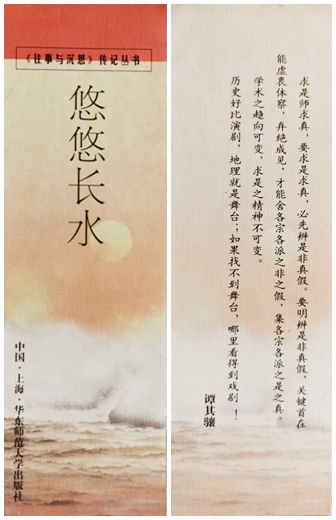 《往事与沉思》传记丛书
悠悠长水
中国·上海·华东师范大学出版社
求是师求真，要求是求真，必先辨是非真假。要明辨是非真假，关键首在
能虚衷体察，弃绝成见，才能舍各宗各派之非之假，集各宗各派之是之真。
学术之趋向可变，求是之精神不可变。
历史好比演剧，地理就是舞台；如果找不到舞台，哪里看得到戏剧！
谭其骧